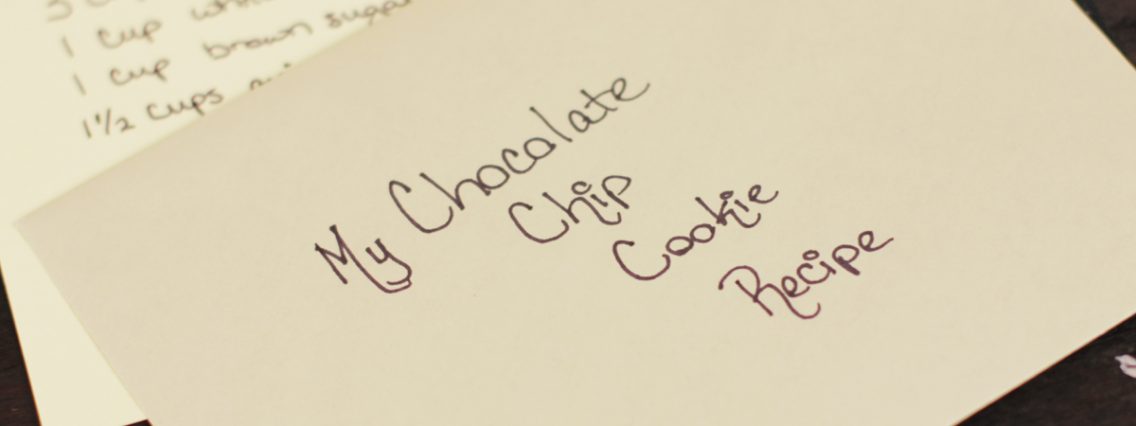 1 cup
1 cup brown sugar
1 1/2 cups
My Chocolate
Chip
Cookie
Recipe